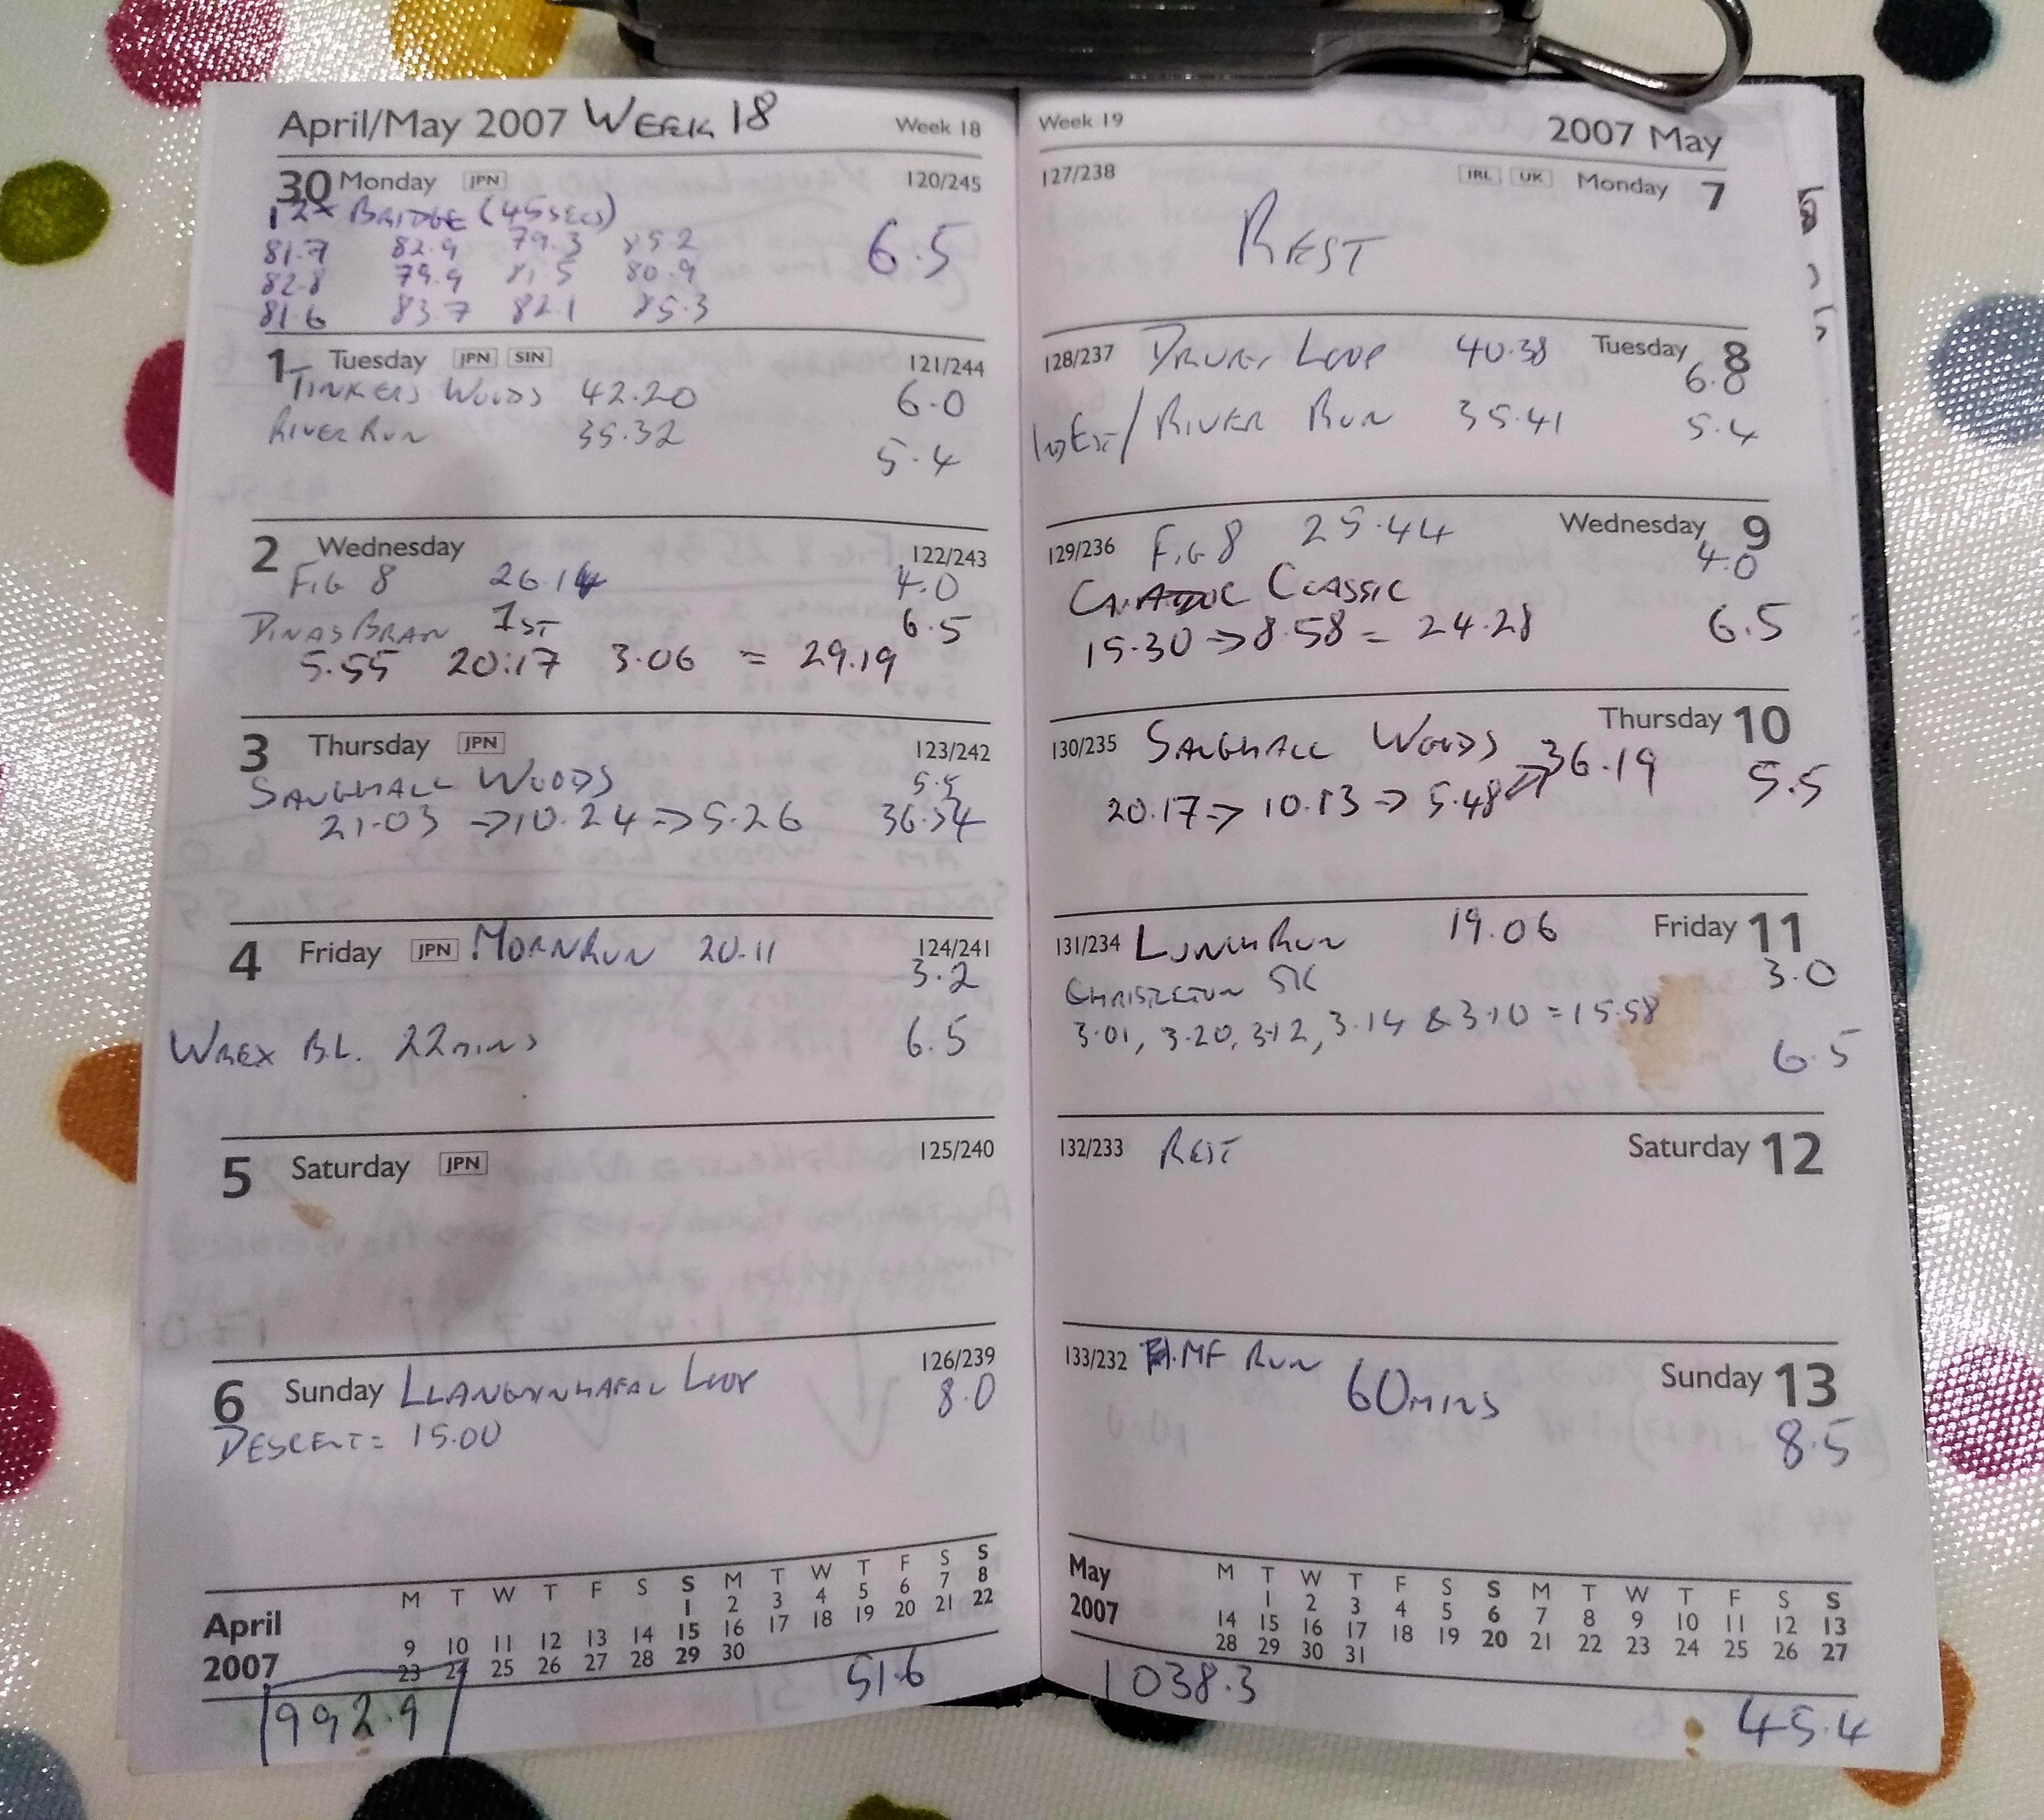 April/May 2007 WEEK 18 Week 18
30 Monday JPN 120/245
12x BRIDGE (45SECS) 6.5
81.7 82.9 79.3 85.2
82.8 79.9 81.5 80.9
81.6 83.7 82.1 85.3
1 Tuesday JPN SIN 121/244
TINKERS WOODS 42.20 6.0
RIVER RUN 35.32 5.4
2 Wednesday 122/243
FIG 8 26.14 4.0
DINAS BRAN 1ST 6.5
5.55 20:17 3.06 = 29.19
3 Thursday JPN 123/242
SAUGHALL WOODS 5.5
21.03 →10.24 →5.26 36.54
4 Friday JPN MORN RUN 20.11 124/241
3.2
WREX B.L. 22MINS 6.5
5 Saturday JPN 125/240
6 Sunday LLANGYNHAFAL LOOP 126/239
8.0
DESCENT = 15.00
M T W T F S S M T W T F S S
April 1 2 3 4 5 6 7 8
2007 9 10 11 12 13 14 15 16 17 18 19 20 21 22
23 24 25 26 27 28 29 30
992.9 51.6
Week 19 2007 May
127/238 IRL UK Monday 7
REST
128/237 DRURY LOOP 40.38 Tuesday 8
6.0
/ RIVER RUN 35.41 5.4
129/236 FIG 8 25.44 Wednesday 9
4.0
CLASSIC
15.30 → 8.58 = 24.28 6.5
130/235 SAUGHALL WOODS 36.19 Thursday 10
20.17 → 10.13 → 5.48 5.5
131/234 LUNCH RUN 19.06 Friday 11
CHRISTLETON 5K 3.0
3.01, 3.20, 3.12, 3.14 & 3.10 = 15.58
6.5
132/233 REST Saturday 12
133/232 MF RUN 60MINS Sunday 13
8.5
May M T W T F S S M T W T F S S
2007 1 2 3 4 5 6 7 8 9 10 11 12 13
14 15 16 17 18 19 20 21 22 23 24 25 26 27
28 29 30 31
1038.3 45.4